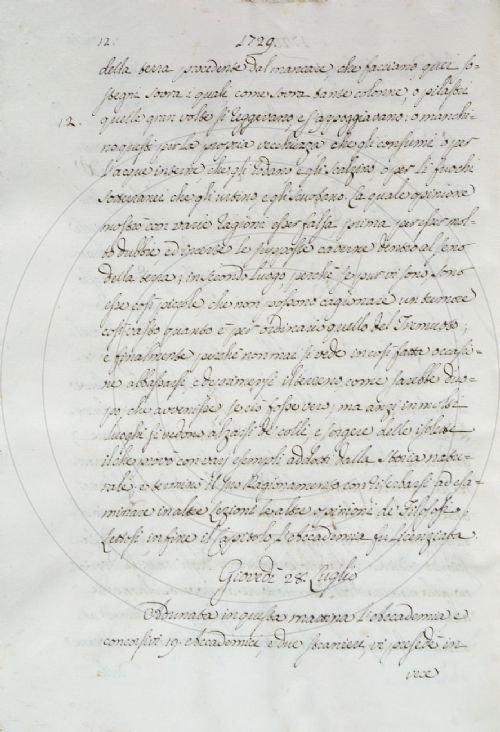 12. 1729.
della terra procedente dal mancare, che facciano, quei so-
stegni sovra i quali come sovra tante colonne, o pilastri
12. quelle gran volte si reggevano, e s'appoggiavano. o manchi-
no questi per la propria vecchiezza che gli consumi, o per
l'acque interne che gli rodano e gli scalzino o per li fuochi
sotterranei che gli urtino e gli scuotano. La quale opinione
mostrò con varie ragioni esser falsa prima per esser mol-
to dubbie ed incerte le supposte caverne dentro al seno
della terra; in secondo luogo, perché se pur vi sono sono
esse così piccole che non possono cagionare un tremore
così vasto quanto è per ordinario quello del Tremuoto;
e finalmente perché non mai si vede in così fatta occasio-
ne abbassarsi e deprimersi il terreno come sarebbe duo-
po, che avvenisse se ciò fosse vero; ma anzi in molti
luoghi si vedon alzarsi de' colli, e sorgere delle isolette
il che provò con varj esempli addotti dalla Storia natu-
rale. e terminò il suo Ragionamento con riserbarsi ad esa-
minare in altre Lezioni le altre opinioni de' Filosofi.
Lettosi, infine il Capitolo l'Accademia fu Licenziata.
Giovedì 28. Luglio
Adunata in questa mattina l'Accademia e
concorsivi 19. Accademici, e due stranieri, vi presedé in
vece